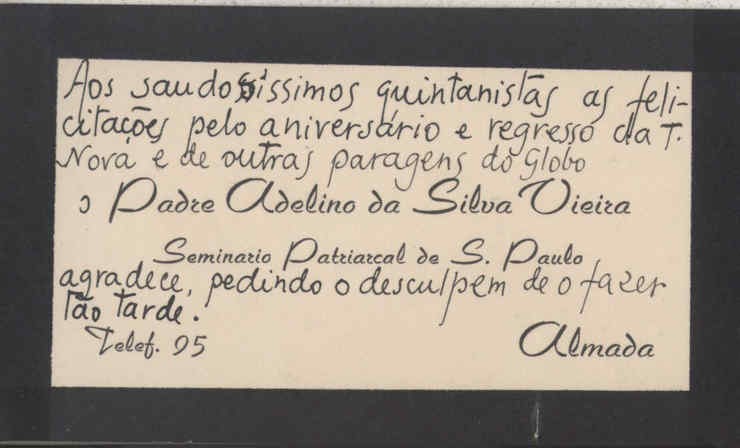 Aos saudosíssimos quintanistas as feli-
citações pelo aniversário e regresso da T.
Nova e de outras paragens do Globo
o Padre Adelino da Silva Vieira
Seminario Patriarcal de S. Paulo
agradece, pedindo o desculpem de o fazer
tão tarde.
Telef. 95
Almada